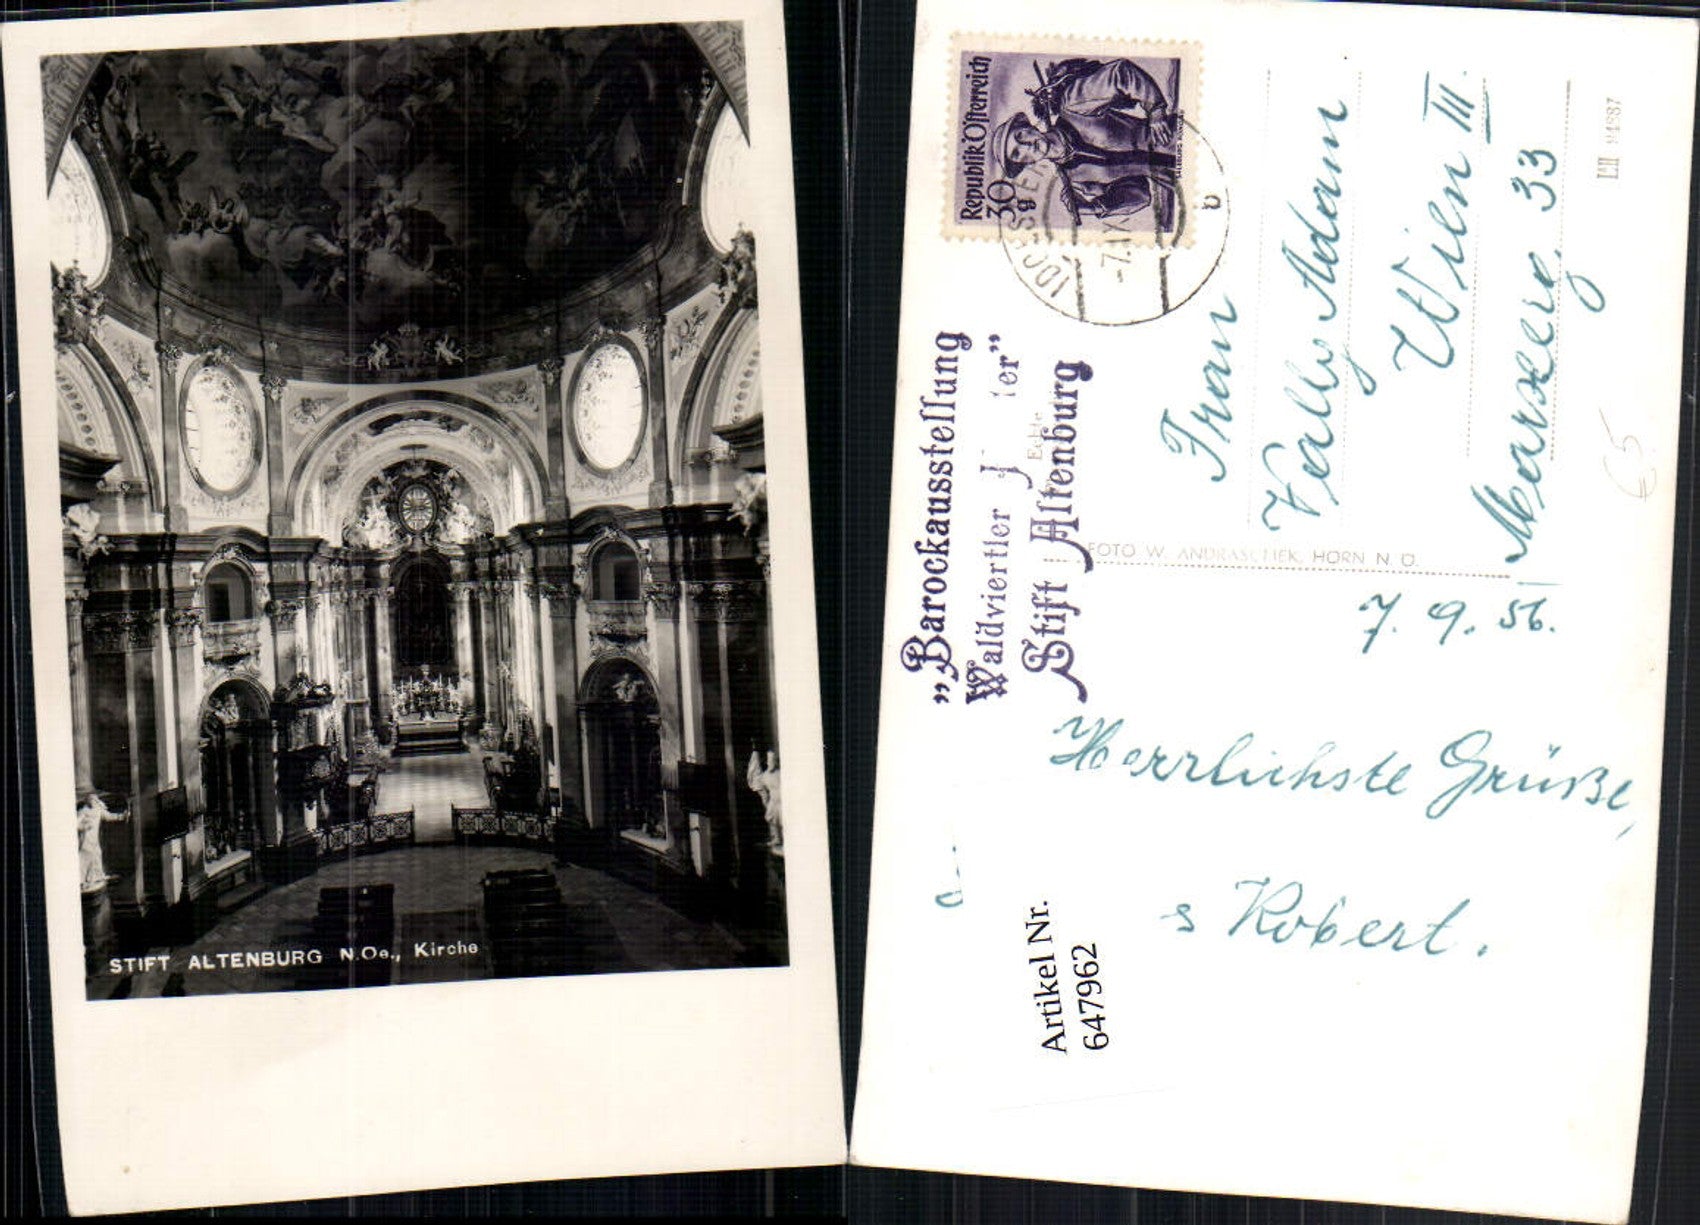 STIFT ALTENBURG N.Oe., Kirche
Republik Österreich
30 g
„Barockausstellung
Waldviertler
Stift Altenburg
Frau
Vally Adam
Wien III.
33
FOTO W. ANDRASCHEK, HORN N. Ö.
7. 9. 56.
Herrlichste Grüße,
s Robert.
Artikel Nr.
647962
€5